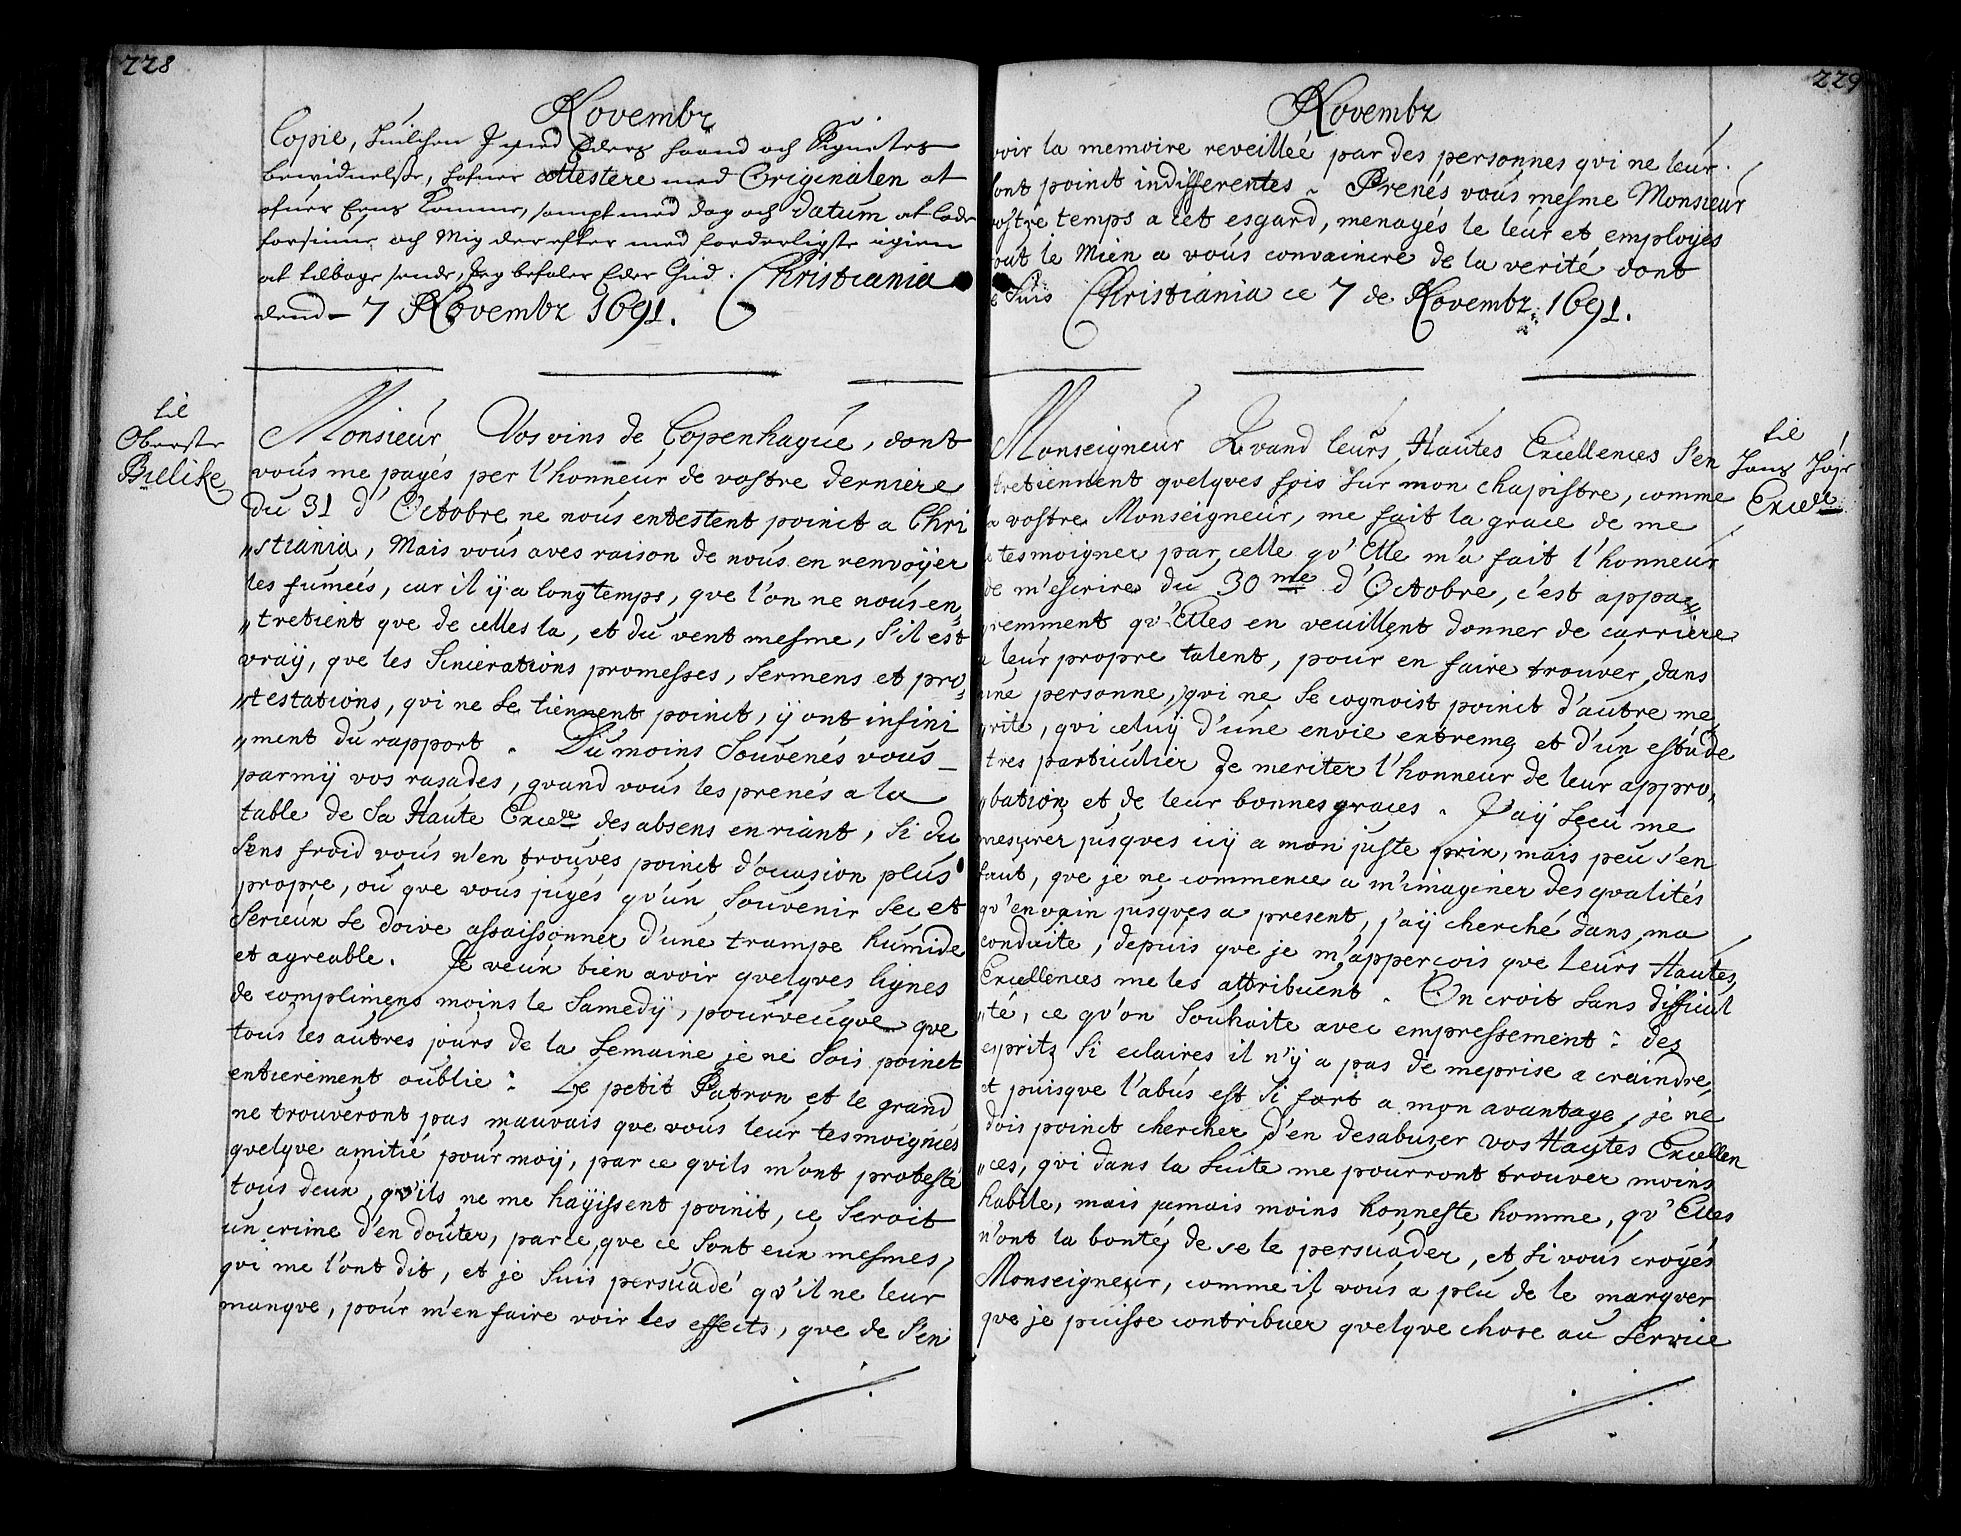 228
Novembr
Copie, huilchen I med Eders haand och Signetes
bewidnelsse, hafuer attestere med Originalen at
ofuer Eens Komme, sampt med dag och datum at lade
forsiune och Mig derefter med forderligste igien
at tilbage sende, Jeg befaler Eder Gud. Christiania
dend 7 Novembr 1691.
til
Oberste
Bielike
Monsieur Vos vins de Copenhague, dont
vous me payés per l'honneur de vostre derniere
du 31 d'Octobre ne nous entestent poinct a Chri
„stiania, Mais vous aves raison de nous en renvoÿer
les fumeés, car il ÿ a longtemps, que l'on ne nous en„
„tretient que de celles la, et du vent mesme, s'il est
vraÿ, que les Sincerations promesses, Sermens et pro„
„testations, qui ne se tiennent poinct, ÿ ont infini
„ment du rapport. Du moins Souvenés vous
parmÿ vos rasades, quand vous les prenés a la
table de Sa Haute Excelle des absens en riant, si du
Sens froid vous n'en trouves poinct d'ocasion plus
propre, ou que vous jugés qu'un Souvenir Sec et
Serieux se doive assaissonner d'une trampe humide
et agreable. Je veux bien avoir quelques lignes
de complimens moins le Samedÿ, pourveuque que
tous les autres jours de la Semaine je ne Sois poinct
entierement oublie: Le petit Patron et le grand
ne trouveront pas mauvais que vous leur tesmoignies
quelque amitié pour moÿ, par ce quils m'ont protesté
tous deux, qu'ils ne me haÿissent poinct, ce Seroit
un crime d'en douter, parce que ce Sont eux mesmes,
qui me l'ont dit, et je suis persuadé qu'il ne leur
manque, pour m'en faire voir les effects, que de s'en
229
Novembr
voir la memoire reveilleé par des personnes qui ne leur
sont poinct indifferentes. Prenés vous mesme Monsieur
vostre temps a cet esgard, menagés le leur et employés
tout le Mien a vous convaincre de la verité dont
je Suis Christiania ce 7 de Novembr 1691.
til
Hans Høje
Excelle
Monseigneur Quand leurs Hautes Excellences s'en
tretiennent quelques fois Sur mon chapistre, comme
la vostre Monseigneur, me fait la grace de me
le tesmoigner par celle qu'Elle m'a fait l'honneur
de m'escrire du 30me d'Octobre, c'est appa„
„remment qu'Elles en veuillent donner de carriere
a leur propre talent, pour en faire trouver dans
une personne, qui ne Se cognoist poinct d'autre me„
„rite, qui celuÿ d'une envie extreme et d'un estude
tres particulier de meriter l'honneur de leur appro„
„bation et de leur bonnes graces. J'aÿ Sceu me
mesurer jusques icÿ a mon juste prix, mais peu s'en
faut, que je ne commence a m'imaginer des qvalités
qu'en vain jusques a present, j'aÿ cherché dans ma
conduite, depuis que je m'appercois que Leurs Hautes
Excellences me les attribuent. On croit sans difficul
„té, ce qu'on Souhaite avec empressement: des
espritz Si eclaires il n'ÿ a pas de meprise a craindre,
et puisque l'abus est Si fort a mon avantage, je ne
dois poinct chercher d'en desabuzer vos Hautes Excellen
„ces, qui dans la Suite me pourront trouver moins
habile, mais jamais moins honneste homme, qu'Elles
n'ont la bonté de se le persuader, et si vous croyés
Monseigneur, comme il vous a plu de le marquer
que je puisse contribuer quelque chose au Service